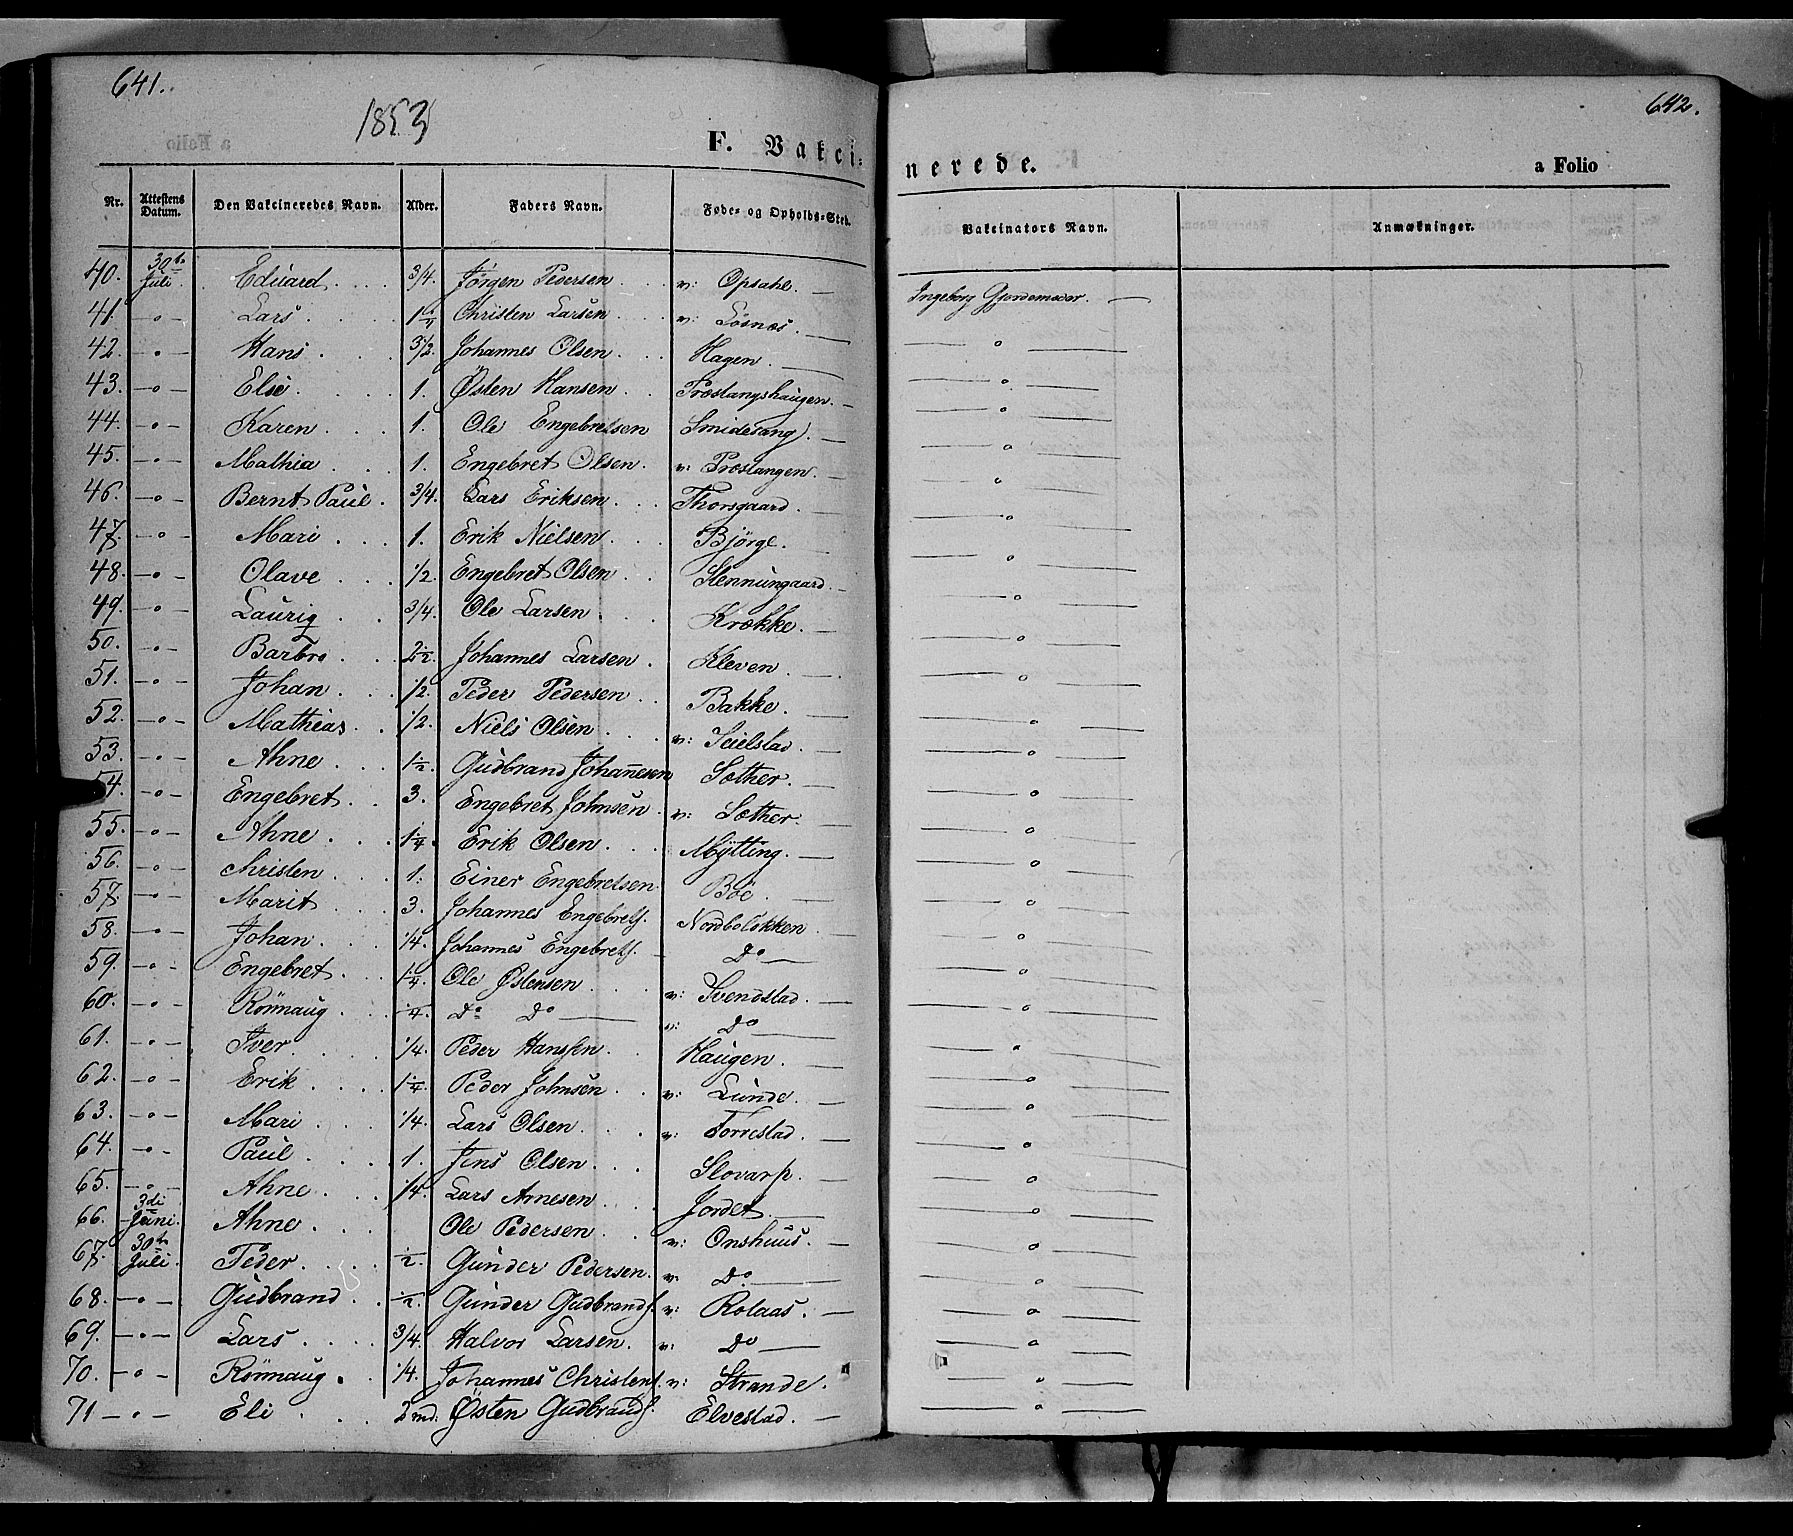 641.
1853
F. Vakci-
Nr. Attestens Datum. Den Vakcineredes Navn. Alder. Faders Navn. Føde- og Opholds-Sted.
40. 30te Juli Eduard 3/4. Jörgen Pedersen v: Opsahl.
41. -o- Lars 1 1/4 Christen Larsen v: Lösnæs.
42. -o- Hans 3 1/2. Johannes Olsen Hagen.
43. -o- Else 1. Østen Hansen Præstangshaugen.
44. -o- Karen 1. Ole Engebretsen
45. -o- Mathia 1. Engebret Olsen. v: Præstangen.
46. -o- Bernt Paul 3/4. Lars Eriksen Thorsgaard.
47. -o- Mari 1. Erik Nielsen Björge.
48. -o- Olave 1/2. Engebret Olsen
49. -o- Lauritz 3/4. Ole Larsen Krække.
50. -o- Barbro 2 1/2. Johannes Larsen Kleven.
51. -o- Johan 1/2. Peder Pedersen Bakke.
52. -o- Mathias 1/2. Niels Olsen v: Seielstad.
53. -o- Ahne 1 1/2. Gudbrand Johannesen Sæther.
54. -o- Engebret 3. Engebret Johnsen v: Sæther.
55. -o- Ahne 1 1/4. Erik Olsen Mytting.
56. -o- Christen 1. Einer Engebretsen Böe.
57. -o- Marit 3. Johannes Engebrets. Nordbolökken
58. -o- Johan 1/4. Johannes Engebrets. Do
59. -o- Engebret 1 1/4. Ole Østensen v: Svendstad.
60. -o- Rönnaug 1/4. Do Do v: Do
61. -o- Iver 1/4. Peder Hanssen Haugen.
62. -o- Erik 1 1/4. Peder Johnsen v: Lunde.
63. -o- Mari 1/4. Lars Olsen v: Torrestad.
64. -o- Paul 1. Jens Olsen Slovarp.
65. -o- Ahne 1/4. Lars Arnesen Jordet.
66. 3di Juni. Ahne Ole Pedersen v: Onshuus.
67. 30te Juli. Peder 1/2. Gunder Pedersen. v: Do
68. -o- Gudbrand 1/2. Gunder Gudbrands. v: Rolaas.
69. -o- Lars 3/4. Halvor Larsen. v: Do
70. -o- Rönnaug 1/4. Johannes Christens. v: Strande.
71 -o- Eli 2 md. Østen Gudbrands. Elvestad.
642.
nerede.
a Folio
Vakcinators Navn. Anmækninger.
Ingeborg Gjordemoder.